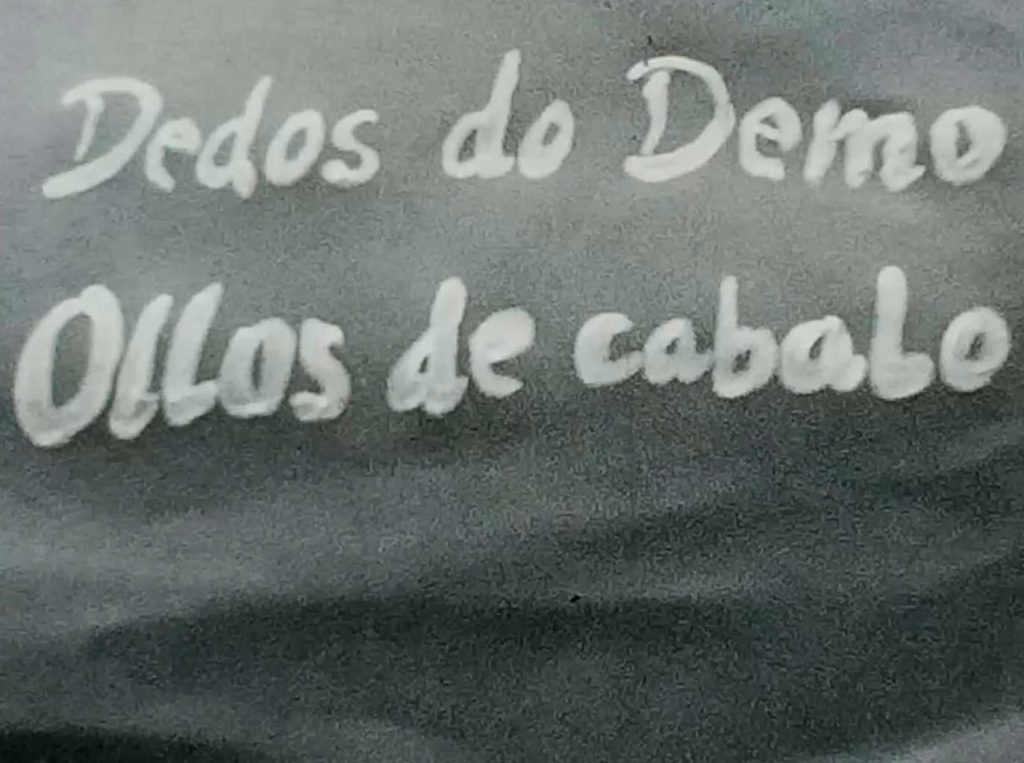 Dedos do Demo
Ollos de cabalo